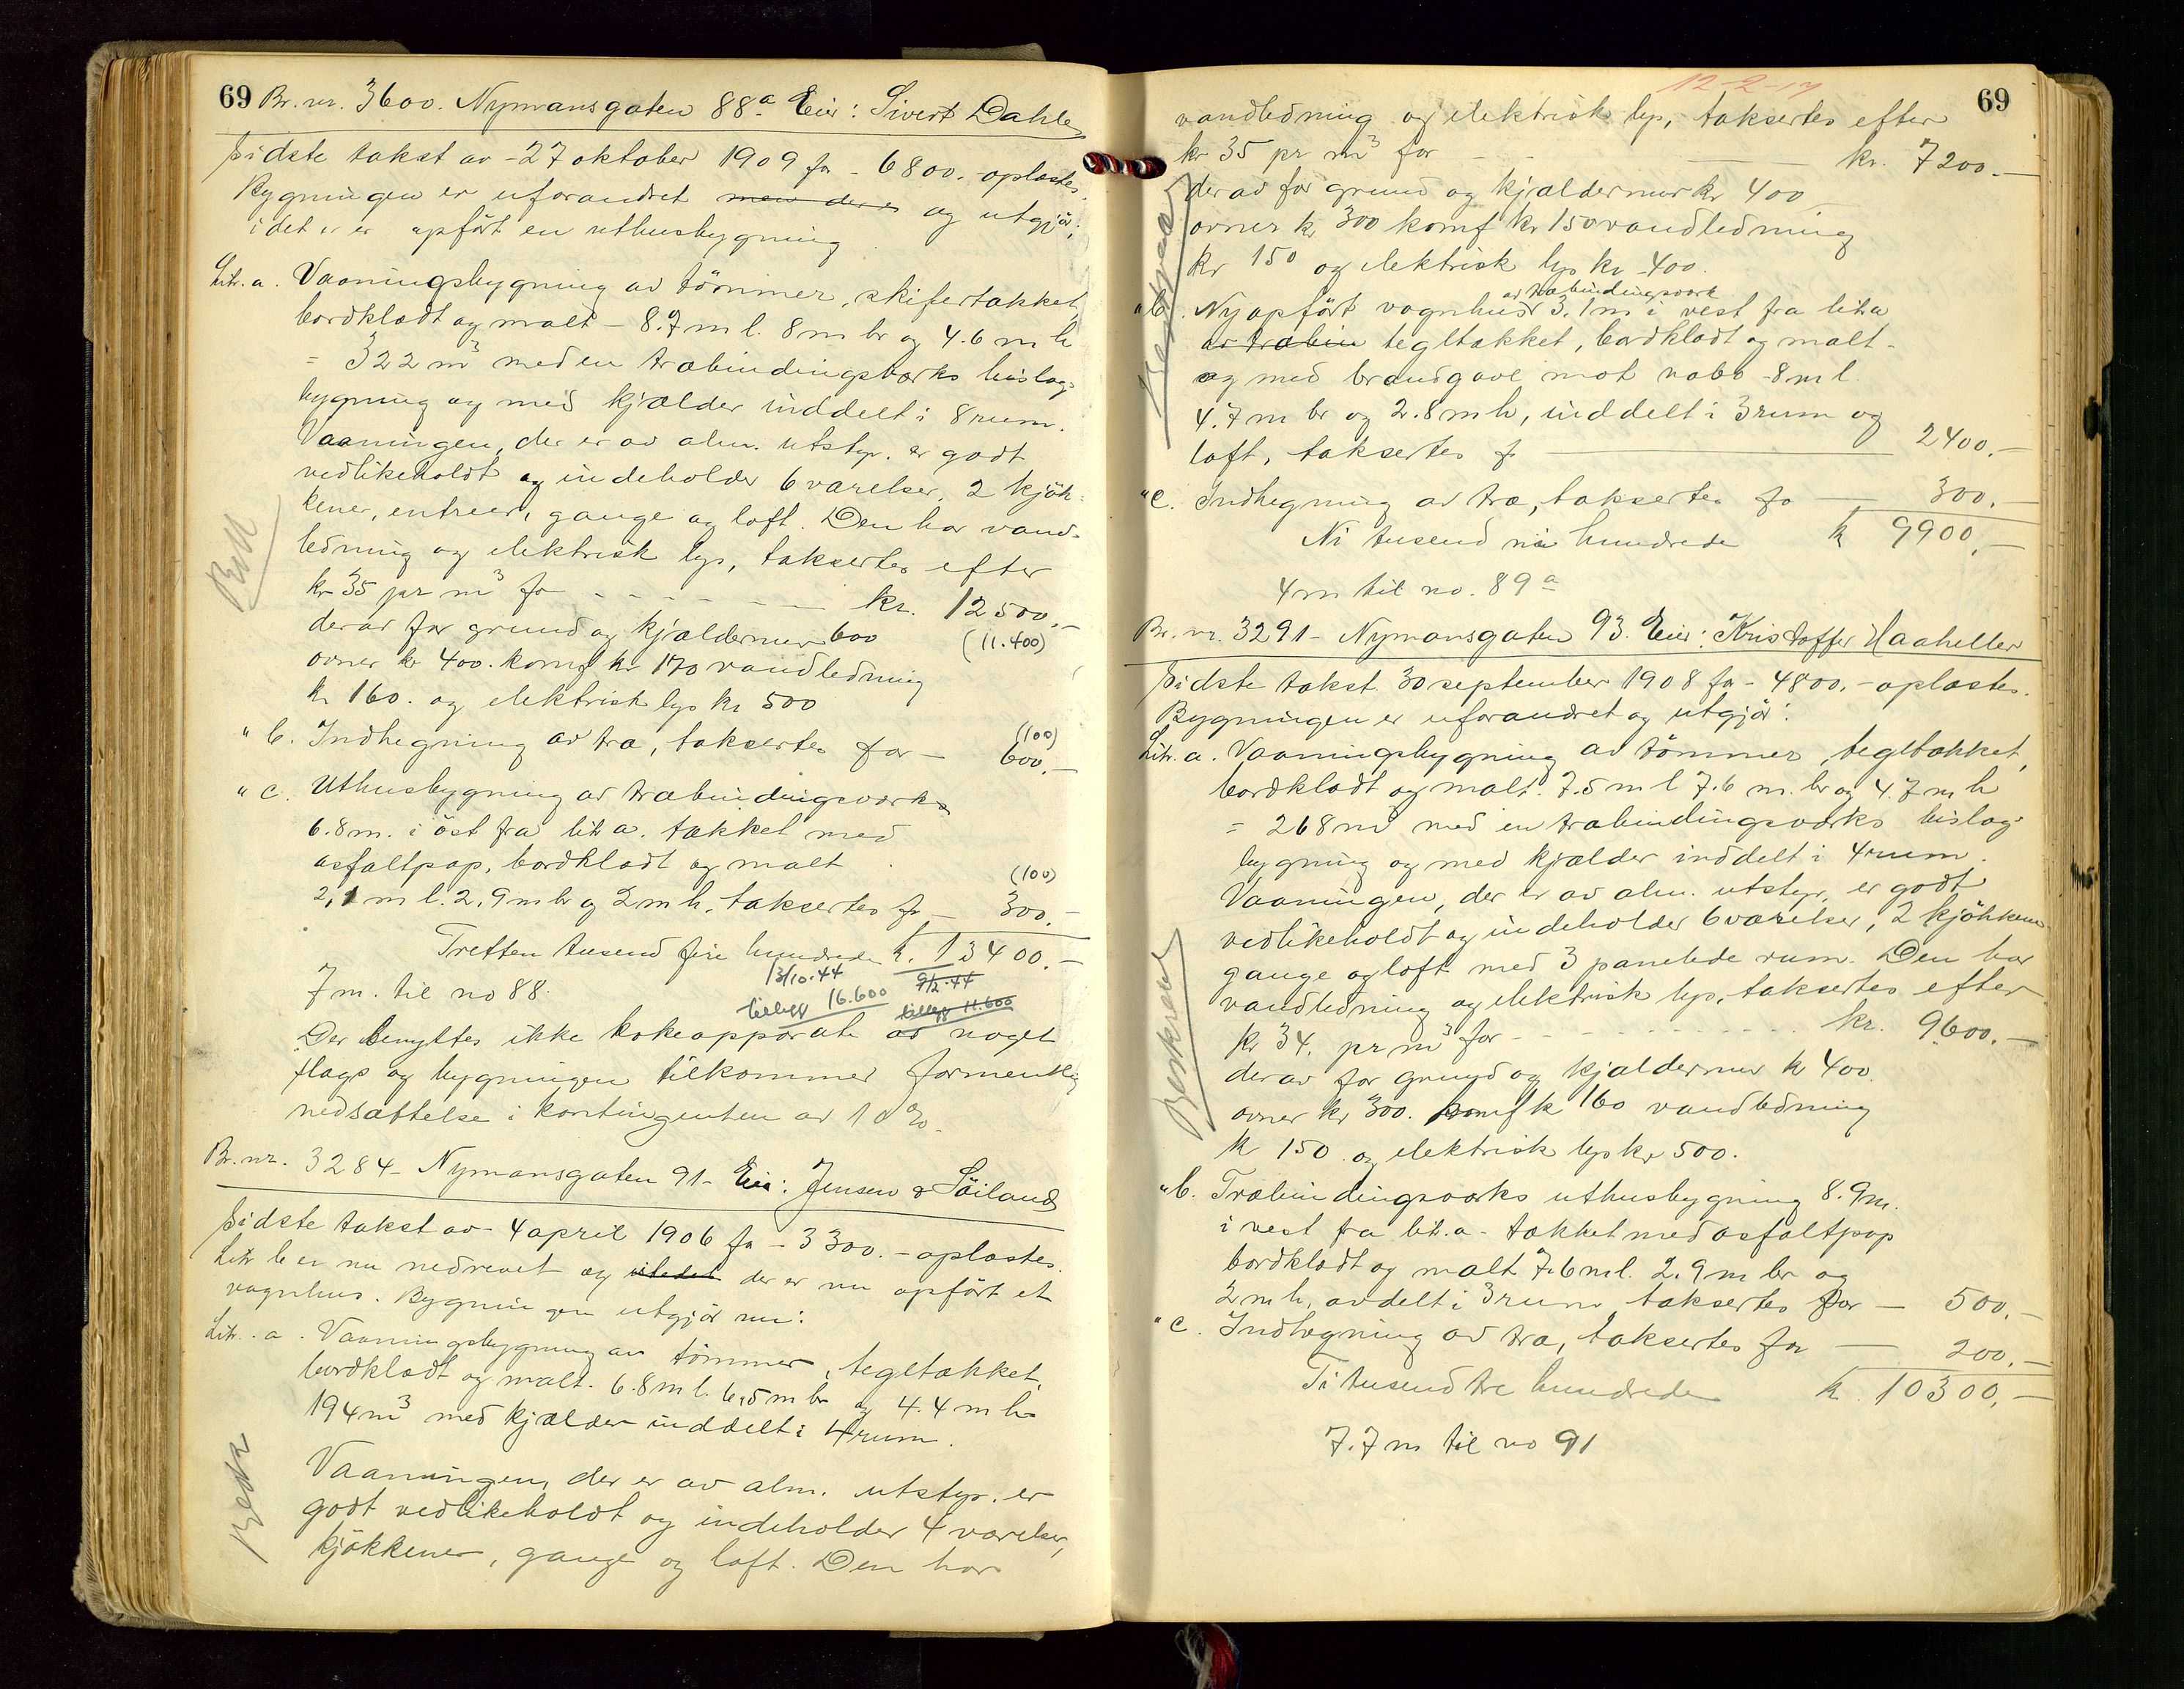 69 Br. nr. 3600. Nymansgaten 88a. Eier: Sivert Dahle
Sidste takst av - 27 oktober 1909 for - 6800.- oplæstes.
Bygningen er uforandret men der er og utgjör:
idet er opfört en uthusbygning
Litr. a. Vaaningsbygning av tömmer, skifertækket,
bordklædt og malt - 8.7 m l. 8 m br og 4.6 m h
= 322 m³ med en træbindingsverks bislag-
bygning og med kjælder inddelt i 8 rum.
Vaaningen, der er av alm. utstyr, er godt
vedlikeholdt og indeholder 6 værelser, 2 kjök-
kener, entreer, gange og loft. Den har vand-
ledning og elektrisk lys, taksertes efter
kr 35 pr m³ for - - - - - - kr. 12500.-
(11.400)
derav for grund og kjældermur 600
ovner kr 400. komf kr 170 vandledning
kr 160. og elektrisk lys kr 500
" b. Indhegning av træ, taksertes for — 600.-
(100)
" c. Uthusbygning av træbindingsverk
6.8 m. i öst fra lit a. tækket med
asfaltpap, bordklædt og malt
2,1 m l. 2,9 m br og 2 m h. taksertes for — 300.-
(100)
Tretten tusend fire hundrede kr. 13400.-
13/10.44 9/2.44
7 m. til no 88.
tillegg 16.600 tillegg 11.600
Der benyttes ikke kokeapparater av noget
slags og bygningen tilkommer formentlig
nedsættelse i kontingenten av 10 %.
Br. nr. 3284 - Nymansgaten 91 - Eier: Jensen & Söiland
Sidste takst av - 4 april 1906 for - 3300.- oplæstes.
Litr b er nu nedrevet og istedet der er nu opfört et
vognhus. Bygningen utgjör nu:
Litr. a. Vaaningsbygning av tömmer, tegltækket,
bordklædt og malt. 6.8 m l. 6,5 m br og 4.4 m h
194 m³ med kjælder inddelt i 4 rum.
Vaaningen, der er av alm. utstyr. er
godt vedlikeholdt og indeholder 4 værelser,
kjökkener, gange og loft. Den har
12-2-17
69
vandledning og elektrisk lys, taksertes efter
kr 35 pr m³ for - - — kr. 7200.-
derav for grund og kjældermur kr 400
ovner kr 300 komf kr 150 vandledning
kr 150 og elektrisk lys kr 400.
av træbindingsverk
" b. Nyopfört vognhus 3.1 m i vest fra lit a
av træbin tegltækket, bordklædt og malt -
og med brandgavl mot nabo - 8 m l.
4.7 m br og 2.8 m h, inddelt i 3 rum og
loft, taksertes for — 2400.-
" c. Indhegning av træ, taksertes for — 300.-
Ni tusend ni hundrede kr 9900.-
4 m til no. 89a
Br. nr. 3291 - Nymansgaten 93. Eier: Kristoffer Haaheller
Sidste takst 30 september 1908 for - 4800.- oplæstes.
Bygningen er uforandret og utgjör:
Litr. a. Vaaningsbygning av tömmer, tegltækket,
bordklædt og malt. 7.5 m l 7.6 m. br og 4.7 m h
= 268 m³ med en træbindingsverks bislag-
bygning og med kjælder inddelt i 4 rum.
Vaaningen, der er av alm. utstyr, er godt
vedlikeholdt og indeholder 6 værelser, 2 kjökkener
gange og loft med 3 panelede rum. Den har
vandledning og elektrisk lys, taksertes efter
kr 34. pr m³ for - - - - - - kr. 9600.-
derav for grund og kjældermur kr 400.
ovner kr 300. komf kr 160 vandledning
kr 150 og elektrisk lys kr 500.
" b. Træbindingsverks uthusbygning 8.9 m.
i vest fra lit. a - tækket med asfaltpap
bordklædt og malt 7.6 m l. 2.9 m br og
2 m h, avdelt i 3 rum taksertes for — 500.-
" c. Indhegning av træ, taksertes for — 200.-
Ti tusend tre hundrede kr. 10300.-
7.7 m til no 91